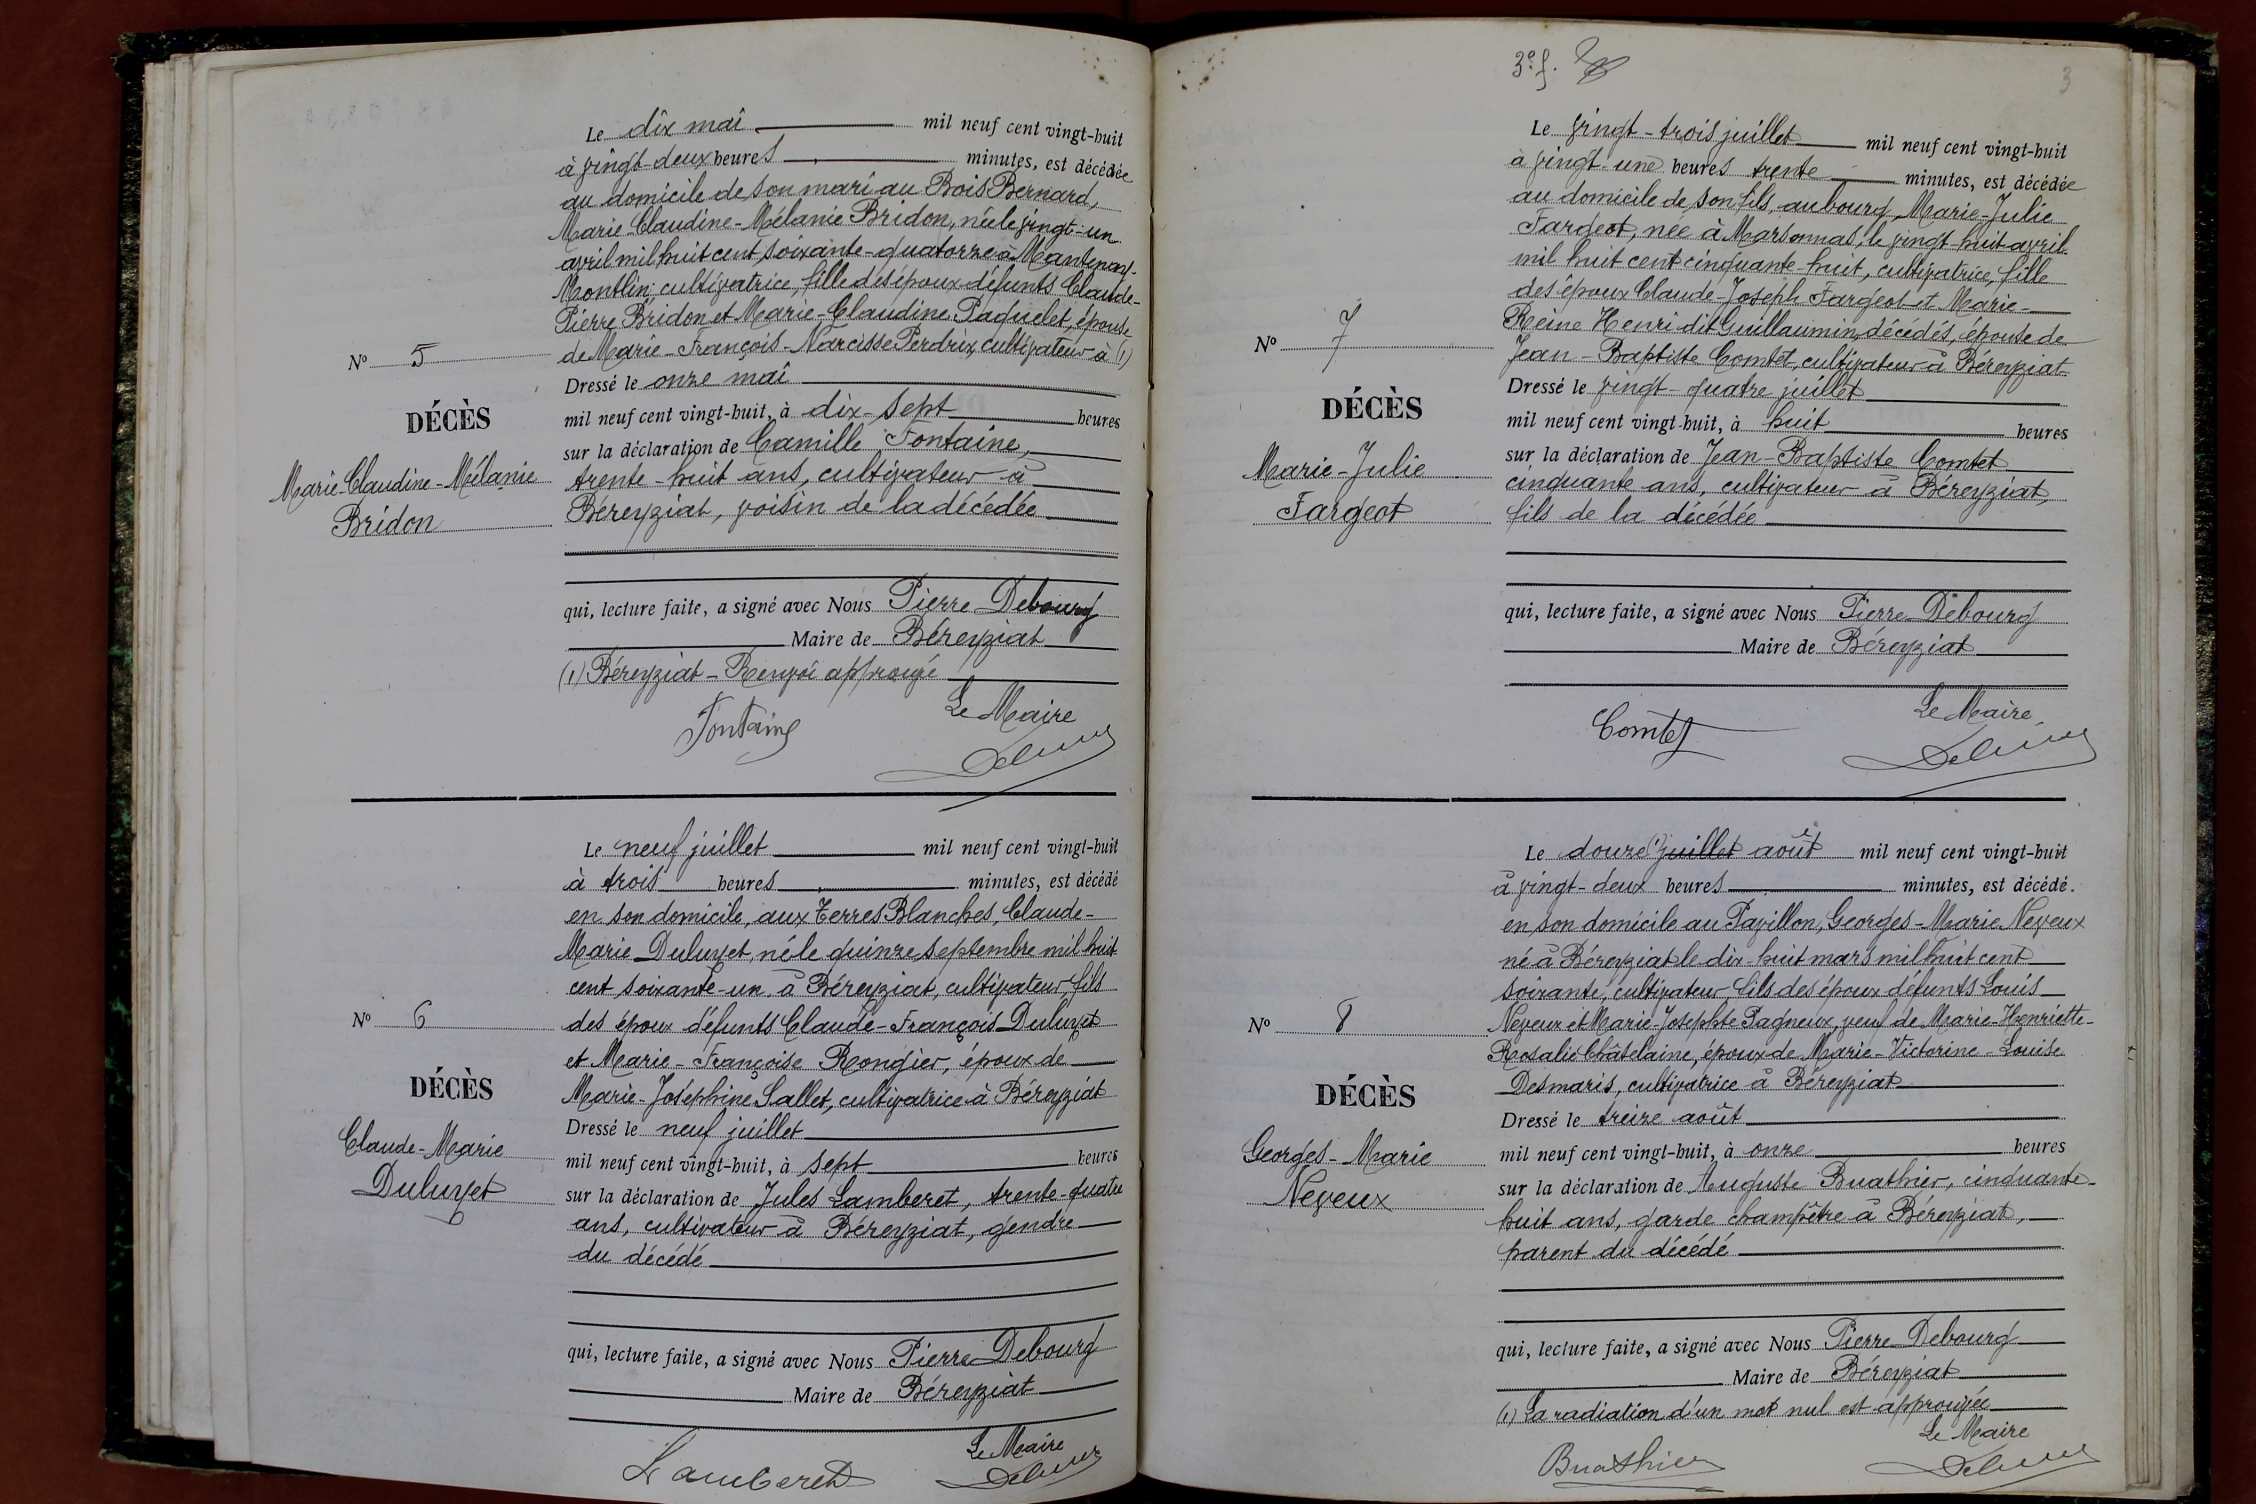 Le dix mai mil neuf cent vingt-huit
à vingt-deux heures minutes, est décédée
au domicile de son mari au Bois Bernard,
Marie-Claudine-Mélanie Bridon, née le vingt-un
avril mil huit cent soixante-quatorze à Mantenay-
Montlin, cultivatrice, fille des époux défunts Claude-
Pierre Bridon et Marie-Claudine Paquelet, épouse
de Marie-François-Narcisse Perdrix, cultivateur à (1)
Nº 5
Dressé le onze mai
DÉCÈS
mil neuf cent vingt-huit, à dix-sept heures
sur la déclaration de Camille Fontaine,
Marie-Claudine-Mélanie
trente-huit ans, cultivateur à
Bridon
Béreyziat, voisin de la décédée
qui, lecture faite, a signé avec Nous Pierre Debourg
Maire de Béreyziat
(1) Béreyziat - Renvoi approuvé
Fontaine
Le Maire
Le neuf juillet mil neuf cent vingt-huit
à trois heures minutes, est décédé
en son domicile, aux Terres Blanches, Claude-
Marie Duluyet, né le quinze septembre mil huit
cent soixante-un à Béreyziat, cultivateur, fils
Nº 6
des époux défunts Claude-François Duluyet
et Marie-Françoise Rongier, époux de
DÉCÈS
Marie-Joséphine Sallet, cultivatrice à Béreyziat
Dressé le neuf juillet
Claude-Marie
mil neuf cent vingt-huit, à sept heures
Duluyet
sur la déclaration de Jules Lamberet, trente-quatre
ans, cultivateur à Béreyziat, gendre
du décédé
qui, lecture faite, a signé avec Nous Pierre Debourg
Maire de Béreyziat
Lamberet
Le Maire
3e. f.
3
Le vingt-trois juillet mil neuf cent vingt-huit
à vingt-une heures trente minutes, est décédée
au domicile de son fils, au bourg, Marie-Julie
Fargeot, née à Marsonnas, le vingt-huit avril
mil huit cent cinquante-huit, cultivatrice, fille
des époux Claude-Joseph Fargeot et Marie-
Reine Henri dit Guillaumin, décédés, épouse de
Nº 7
Jean-Baptiste Comtet, cultivateur à Béreyziat
Dressé le vingt-quatre juillet
DÉCÈS
mil neuf cent vingt-huit, à huit heures
sur la déclaration de Jean-Baptiste Comtet
Marie-Julie
cinquante ans, cultivateur à Béreyziat,
Fargeot
fils de la décédée
qui, lecture faite, a signé avec Nous Pierre Debourg
Maire de Béreyziat
Comtet
Le Maire
Le douze (1) juillet août mil neuf cent vingt-huit
à vingt-deux heures minutes, est décédé.
en son domicile au Pavillon, Georges-Marie Neveux
né à Béreyziat le dix-huit mars mil huit cent
soixante, cultivateur, fils des époux défunts Louis
Nº 8
Neveux et Marie-Josephte Pagneux, veuf de Marie-Henriette-
Rosalie Châtelaine, époux de Marie-Victorine-Louise
Desmaris, cultivatrice à Béreyziat
DÉCÈS
Dressé le treize août
Georges-Marie
mil neuf cent vingt-huit, à onze heures
Neveux
sur la déclaration de Auguste Buathier, cinquante-
huit ans, garde champêtre à Béreyziat,
parent du décédé
qui, lecture faite, a signé avec Nous Pierre Debourg
Maire de Béreyziat
(1) La radiation d'un mot nul est approuvée
Buathier
Le Maire